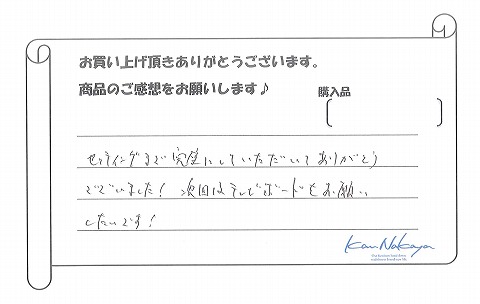 お買い上げ頂きありがとうございます。
商品のご感想をお願いします♪
購入品
セッティングまで完璧にしていただいてありがとう
ございました! 次回はテレビボードもお願い
したいです!
Kan Nakaya